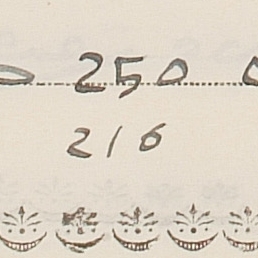 250
216